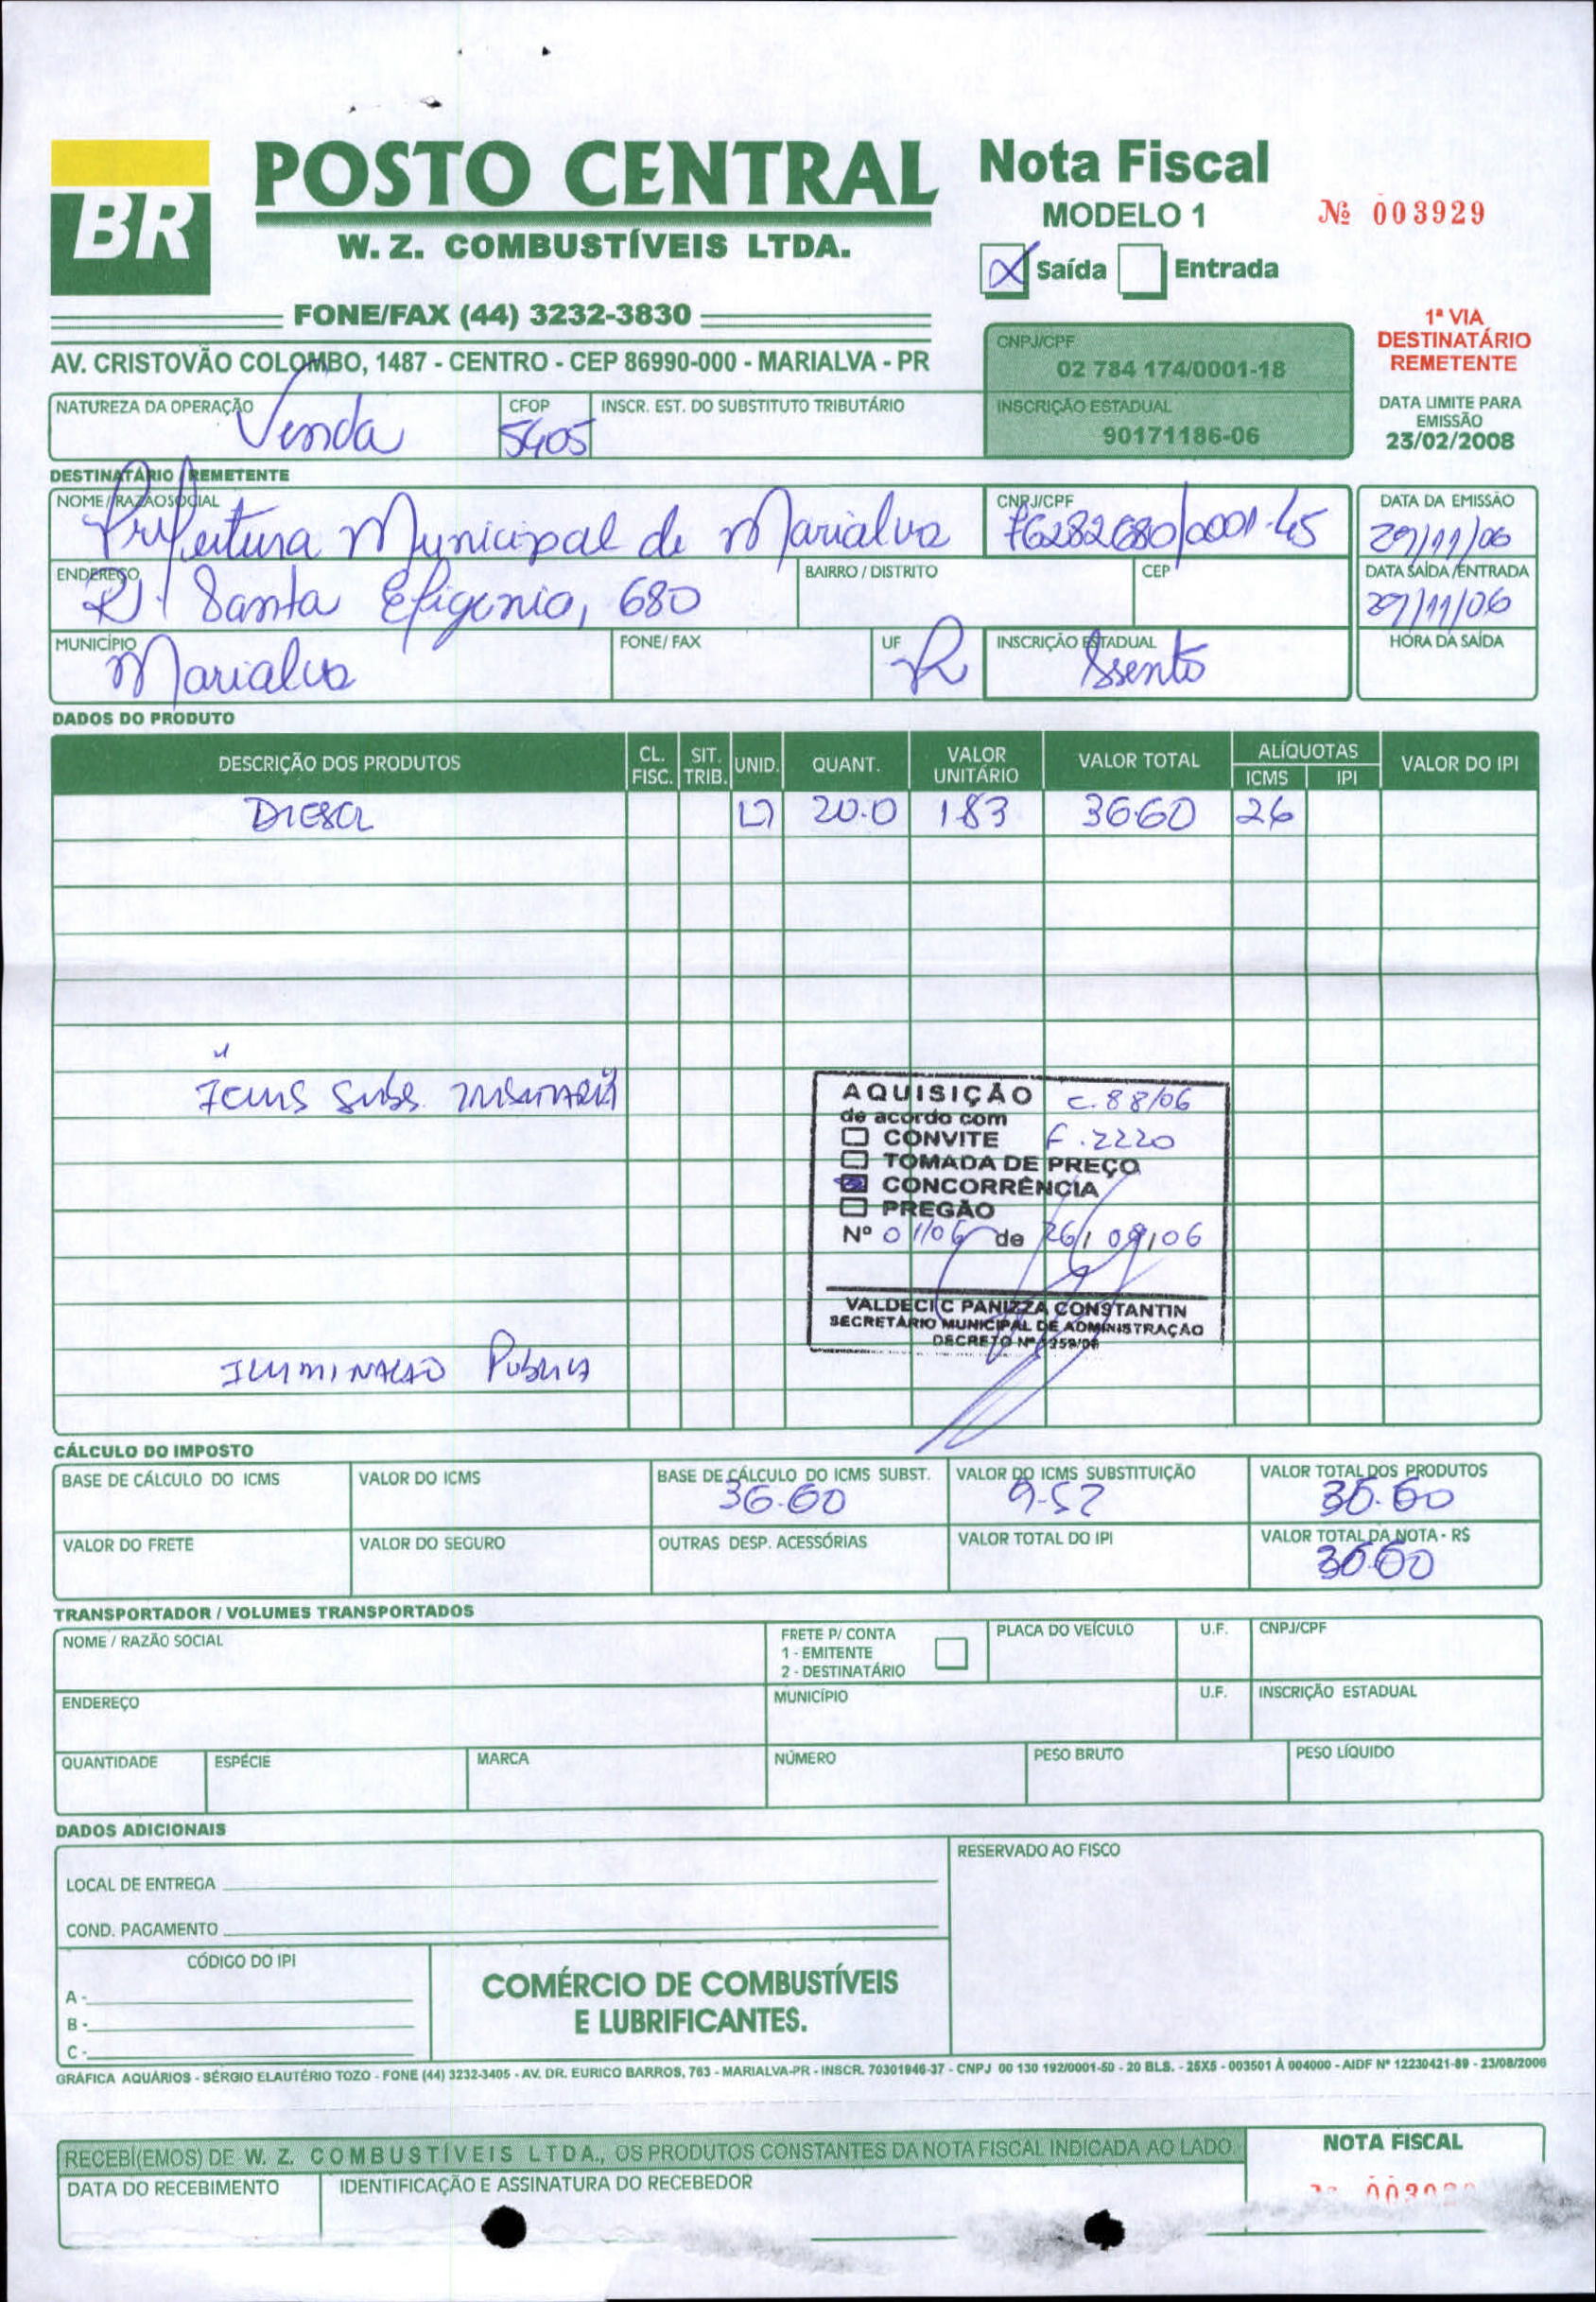 BR
POSTO CENTRAL
W. Z. COMBUSTÍVEIS LTDA.
FONE/FAX (44) 3232-3830
AV. CRISTOVÃO COLOMBO, 1487 - CENTRO - CEP 86990-000 - MARIALVA - PR
Nota Fiscal
MODELO 1
Nº 003929
X Saída Entrada
1ª VIA
DESTINATÁRIO
REMETENTE
CNPJ/CPF
02 784 174/0001-18
INSCRIÇÃO ESTADUAL
90171186-06
DATA LIMITE PARA
EMISSÃO
23/02/2008
NATUREZA DA OPERAÇÃO CFOP INSCR. EST. DO SUBSTITUTO TRIBUTÁRIO
Venda 5405
DESTINATÁRIO / REMETENTE
NOME / RAZÃO SOCIAL CNPJ/CPF DATA DA EMISSÃO
Prefeitura Municipal de Marialva 76282680/0001-45 29/11/06
ENDEREÇO BAIRRO / DISTRITO CEP DATA SAÍDA/ENTRADA
R. Santa Efigenia, 680 29/11/06
MUNICÍPIO FONE/ FAX UF INSCRIÇÃO ESTADUAL HORA DA SAÍDA
Marialva Isento
DADOS DO PRODUTO
DESCRIÇÃO DOS PRODUTOS CL. FISC. SIT. TRIB. UNID. QUANT. VALOR UNITÁRIO VALOR TOTAL ALÍQUOTAS ICMS IPI VALOR DO IPI
DIESEL 20.0 1.83 36.60 26
ICMS SUBS. TRIBUTARIA
AQUISIÇÃO c. 88/06
de acordo com
CONVITE F. 2220
TOMADA DE PREÇO
CONCORRÊNCIA
PREGÃO
Nº 01/06 de 26/09/06
VALDECI C PANIZZA CONSTANTIN
SECRETÁRIO MUNICIPAL DE ADMINISTRAÇÃO
DECRETO Nº
ILUMINACAO PUBLICA
CÁLCULO DO IMPOSTO
BASE DE CÁLCULO DO ICMS VALOR DO ICMS BASE DE CÁLCULO DO ICMS SUBST. VALOR DO ICMS SUBSTITUIÇÃO VALOR TOTAL DOS PRODUTOS
36.60 9.52 36.60
VALOR DO FRETE VALOR DO SEGURO OUTRAS DESP. ACESSÓRIAS VALOR TOTAL DO IPI VALOR TOTAL DA NOTA - R$
36.60
TRANSPORTADOR / VOLUMES TRANSPORTADOS
NOME / RAZÃO SOCIAL FRETE P/ CONTA PLACA DO VEÍCULO U.F. CNPJ/CPF
1 - EMITENTE
2 - DESTINATÁRIO
ENDEREÇO MUNICÍPIO U.F. INSCRIÇÃO ESTADUAL
QUANTIDADE ESPÉCIE MARCA NÚMERO PESO BRUTO PESO LÍQUIDO
DADOS ADICIONAIS
RESERVADO AO FISCO
LOCAL DE ENTREGA
COND. PAGAMENTO
CÓDIGO DO IPI
A -
B -
C -
COMÉRCIO DE COMBUSTÍVEIS
E LUBRIFICANTES.
GRÁFICA AQUÁRIOS - SÉRGIO ELAUTÉRIO TOZO - FONE (44) 3232-3405 - AV. DR. EURICO BARROS, 763 - MARIALVA-PR - INSCR. 70301946-37 - CNPJ 00 130 192/0001-50 - 20 BLS. - 25X5 - 003501 À 004000 - AIDF Nº 12230421-89 - 23/08/2006
RECEBI(EMOS) DE W. Z. COMBUSTÍVEIS LTDA., OS PRODUTOS CONSTANTES DA NOTA FISCAL INDICADA AO LADO.
NOTA FISCAL
DATA DO RECEBIMENTO IDENTIFICAÇÃO E ASSINATURA DO RECEBEDOR